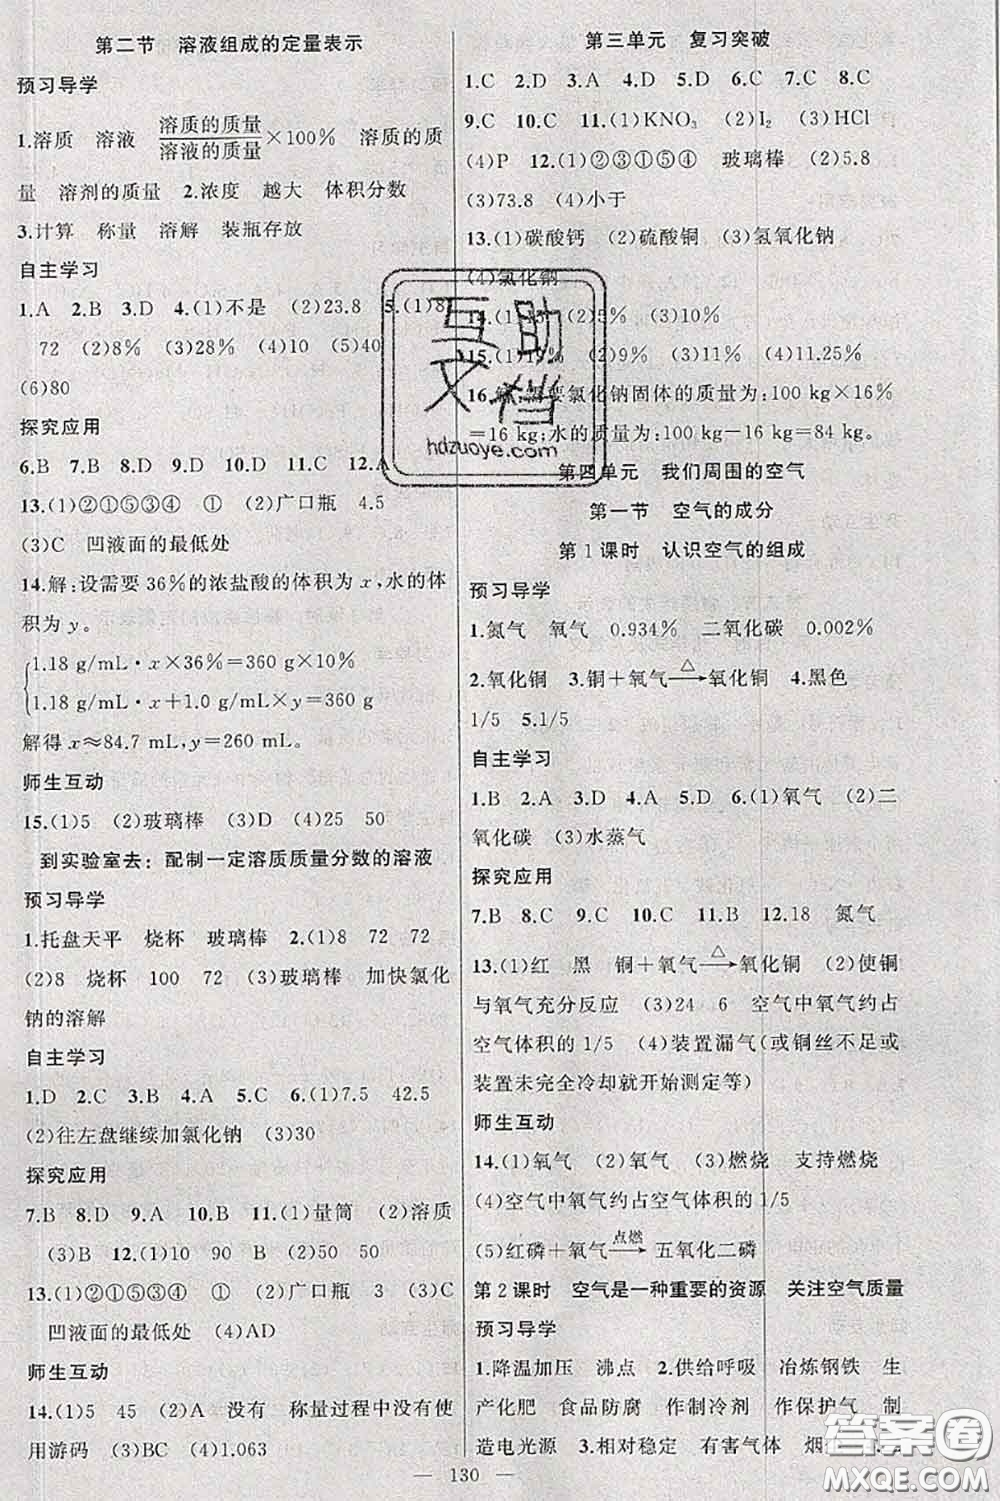 第二节 溶液组成的定量表示
预习导学
1.溶质 溶液 溶质的质量/溶液的质量×100% 溶质的质
量 溶剂的质量 2.浓度 越大 体积分数
3.计算 称量 溶解 装瓶存放
自主学习
1.A 2.B 3.D 4.(1)不是 (2)23.8 5.(1)8
72 (2)8% (3)28% (4)10 (5)40
(6)80
探究应用
6.B 7.B 8.D 9.D 10.D 11.C 12.A
13.(1)②①⑤③④ ① (2)广口瓶 4.5
(3)C 凹液面的最低处
14.解:设需要36%的浓盐酸的体积为x,水的体
积为y。
1.18 g/mL·x×36%=360 g×10%
1.18 g/mL·x+1.0 g/mL×y=360 g
解得x≈84.7 mL,y=260 mL。
师生互动
15.(1)5 (2)玻璃棒 (3)D (4)25 50
到实验室去:配制一定溶质质量分数的溶液
预习导学
1.托盘天平 烧杯 玻璃棒 2.(1)8 72 72
(2)8 烧杯 100 72 (3)玻璃棒 加快氯化
钠的溶解
自主学习
1.D 2.C 3.B 4.A 5.C 6.(1)7.5 42.5
(2)往左盘继续加氯化钠 (3)30
探究应用
7.B 8.D 9.A 10.B 11.(1)量筒 (2)溶质
(3)B 12.(1)10 90 B (2)50 50
13.(1)②①⑤③④ ① (2)广口瓶 3 (3)C
凹液面的最低处 (4)AD
师生互动
14.(1)5 45 (2)A 没有 称量过程中没有使
用游码 (3)BC (4)1.063
第三单元 复习突破
1.C 2.D 3.A 4.D 5.D 6.C 7.C 8.C
9.C 10.C 11.(1)KNO₃ (2)I₂ (3)HCl
(4)P 12.(1)①②③①⑤④ 玻璃棒 (2)5.8
(3)73.8 (4)小于
13.(1)碳酸钙 (2)硫酸铜 (3)氢氧化钠
(4)氯化钠
14. (2)5% (3)10%
15.(1)19% (2)9% (3)11% (4)11.25%
16.解:需要氯化钠固体的质量为:100 kg×16%
=16 kg;水的质量为:100 kg-16 kg=84 kg。
第四单元 我们周围的空气
第一节 空气的成分
第1课时 认识空气的组成
预习导学
1.氮气 氧气 0.934% 二氧化碳 0.002%
2.氧化铜 3.铜+氧气 △→ 氧化铜 4.黑色
1/5 5.1/5
自主学习
1.B 2.A 3.D 4.A 5.D 6.(1)氧气 (2)二
氧化碳 (3)水蒸气
探究应用
7.B 8.C 9.C 10.C 11.B 12.18 氮气
13.(1)红 黑 铜+氧气 △→ 氧化铜 (2)使铜
与氧气充分反应 (3)24 6 空气中氧气约占
空气体积的1/5 (4)装置漏气(或铜丝不足或
装置未完全冷却就开始测定等)
师生互动
14.(1)氧气 (2)氧气 (3)燃烧 支持燃烧
(4)空气中氧气约占空气体积的1/5
(5)红磷+氧气 点燃→ 五氧化二磷
第2课时 空气是一种重要的资源 关注空气质量
预习导学
1.降温加压 沸点 2.供给呼吸 冶炼钢铁 生
产化肥 食品防腐 作制冷剂 作保护气 制
造电光源 3.相对稳定 有害气体
互助
文档
hdzuoye.com
答案圈
MXQE.COM
— 130 —